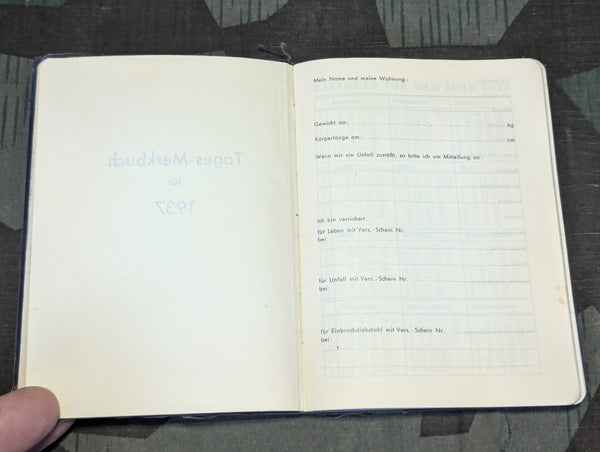 Tages-Merkbuch
für
1937
Mein Name und meine Wohnung:
KALENDER FÜR DAS JAHR 1937
Gewicht am: kg
Körperlänge am: cm
Wenn mir ein Unfall zustößt, so bitte ich um Mitteilung an:
Ich bin versichert:
für Leben mit Vers.-Schein Nr.
bei:
für Unfall mit Vers.-Schein Nr.
bei:
für Einbruchdiebstahl mit Vers.-Schein Nr.
bei: